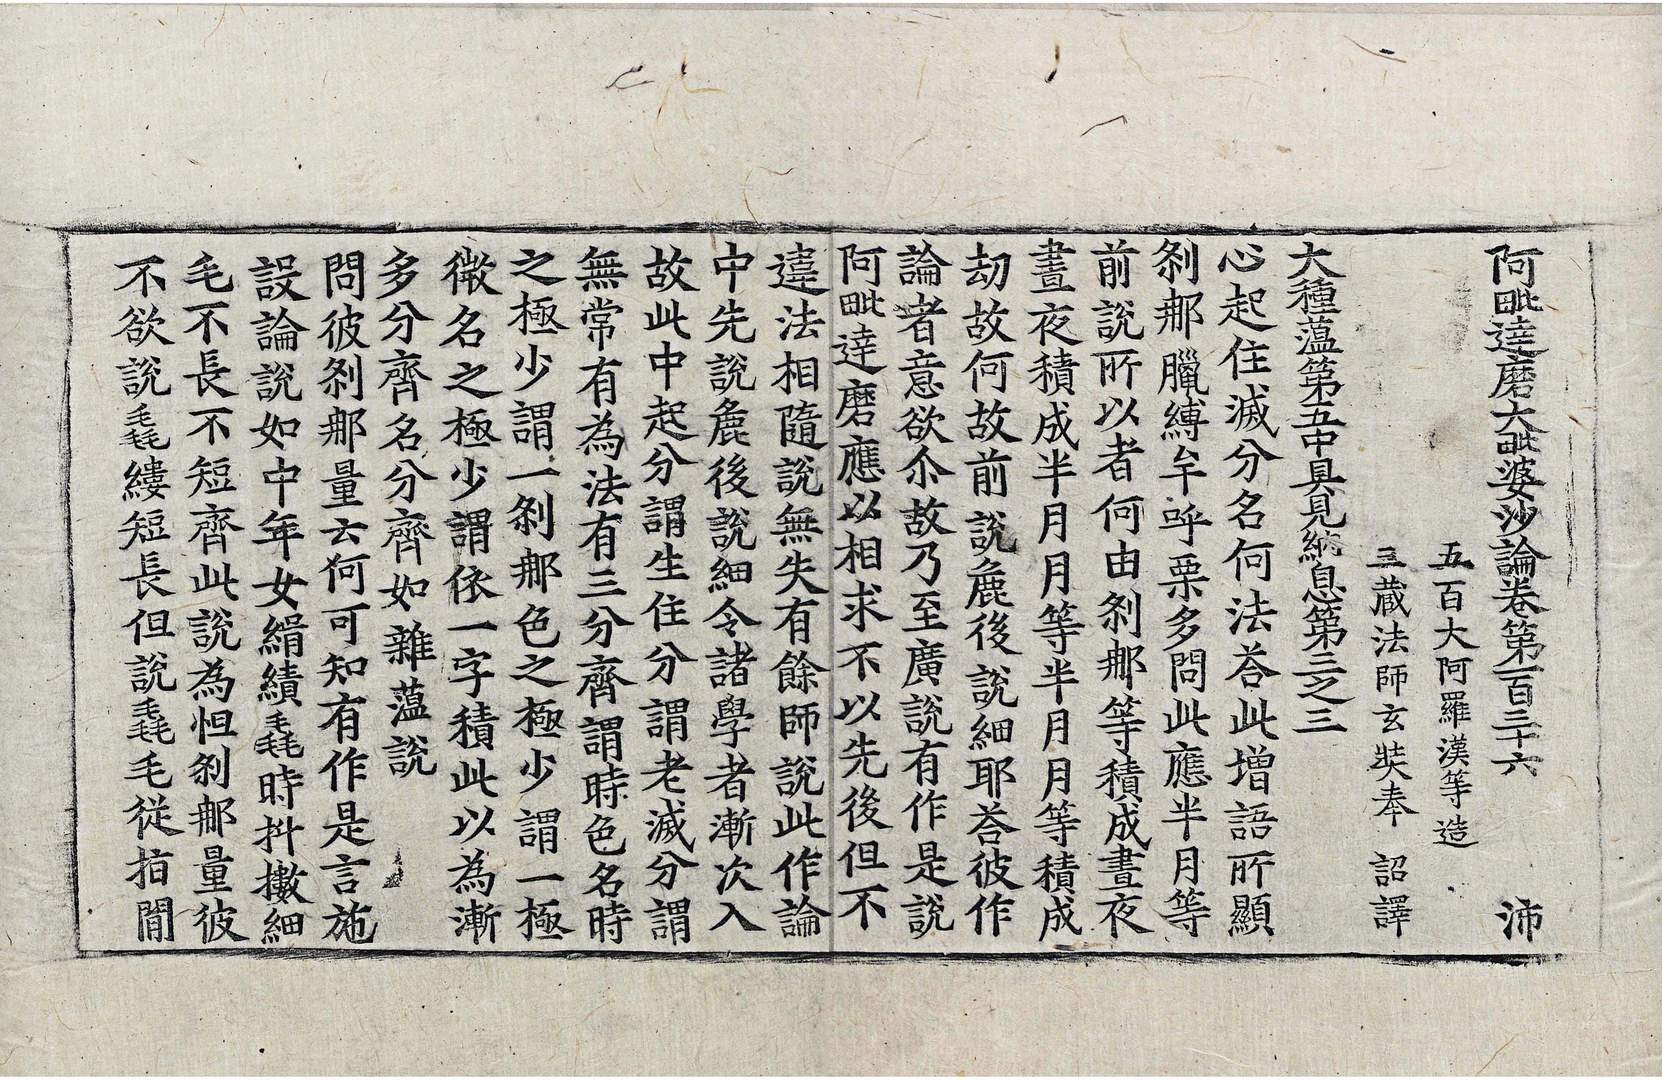 阿毗達磨大毗婆沙論卷第一百三十六　沛
五百大阿羅漢等造
三藏法師玄奘奉　詔譯
大種蘊第五中具見納息第三之三
心起住滅分名何法荅此增語所顯
刹那臘縛牟呼栗多問此應半月等
前說所以者何由刹那等積成晝夜
晝夜積成半月月等半月月等積成
劫故何故前說麁後說細耶荅彼作
論者意欲尒故乃至廣說有作是說
阿毗達磨應以相求不以先後但不
違法相隨說無失有餘師說此作論
中先說麁後說細令諸學者漸次入
故此中起分謂生住分謂老滅分謂
無常有為法有三分齊謂時色名時
之極少謂一刹那色之極少謂一極
微名之極少謂依一字積此以為漸
多分齊名分齊如雜蘊說
問彼刹那量云何可知有作是言施
設論說如中年女緝績毳時抖擻細
毛不長不短齊此說為怛刹那量彼
不欲說毳縷短長但說毳毛從指閒